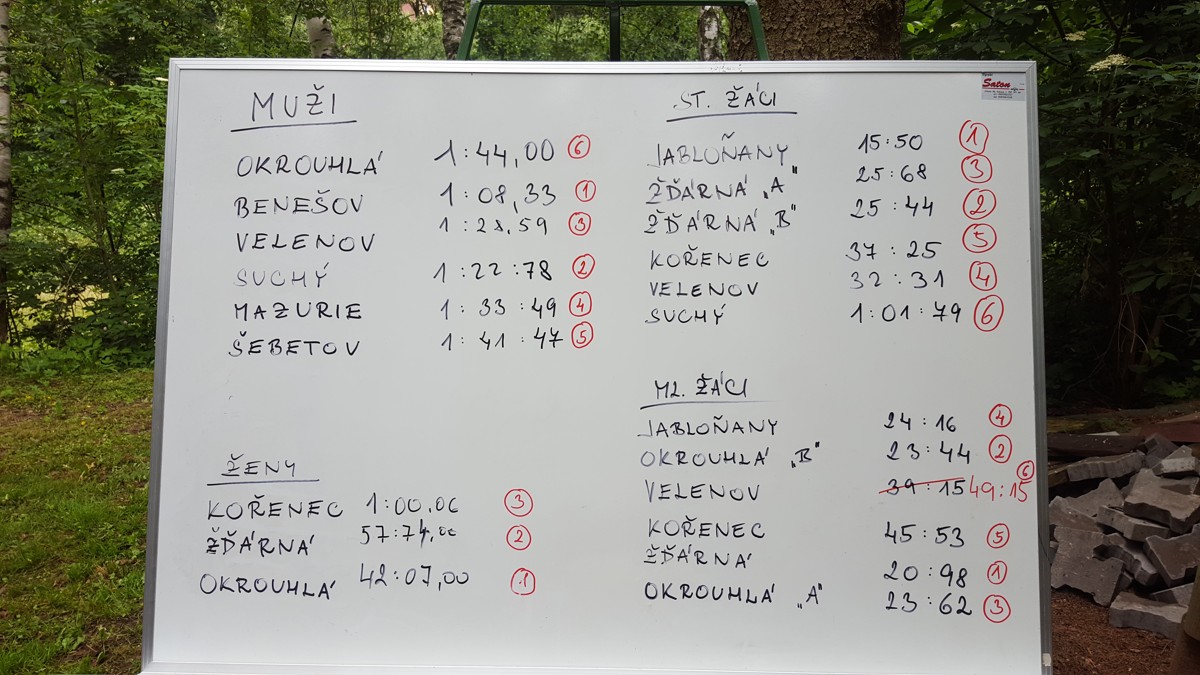 MUŽI
OKROUHLÁ 1:44,00 6
BENEŠOV 1:08,33 1
VELENOV 1:28,59 3
SUCHÝ 1:22:78 2
MAZURIE 1:33:49 4
ŠEBETOV 1:41:47 5
ŽENY
KOŘENEC 1:00,06 3
ŽĎÁRNÁ 57:74,00 2
OKROUHLÁ 42:07,00 1
ST. ŽÁCI
JABLOŇANY 15:50 1
ŽĎÁRNÁ „A" 25:68 3
ŽĎÁRNÁ „B" 25:44 2
KOŘENEC 37:25 5
VELENOV 32:31 4
SUCHÝ 1:01:79 6
ML. ŽÁCI
JABLOŇANY 24:16 4
OKROUHLÁ „B" 23:44 2
VELENOV 39:15 49:15 6
KOŘENEC 45:53 5
ŽĎÁRNÁ 20:98 1
OKROUHLÁ „A" 23:62 3
Saton